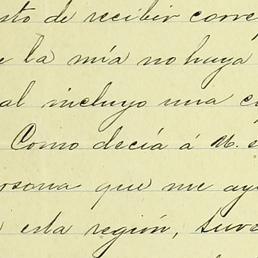 sto de recibir corre
e la mía no haya
al incluyo una c
Como decía á U. e
ersona que me ay
esta región, tuve